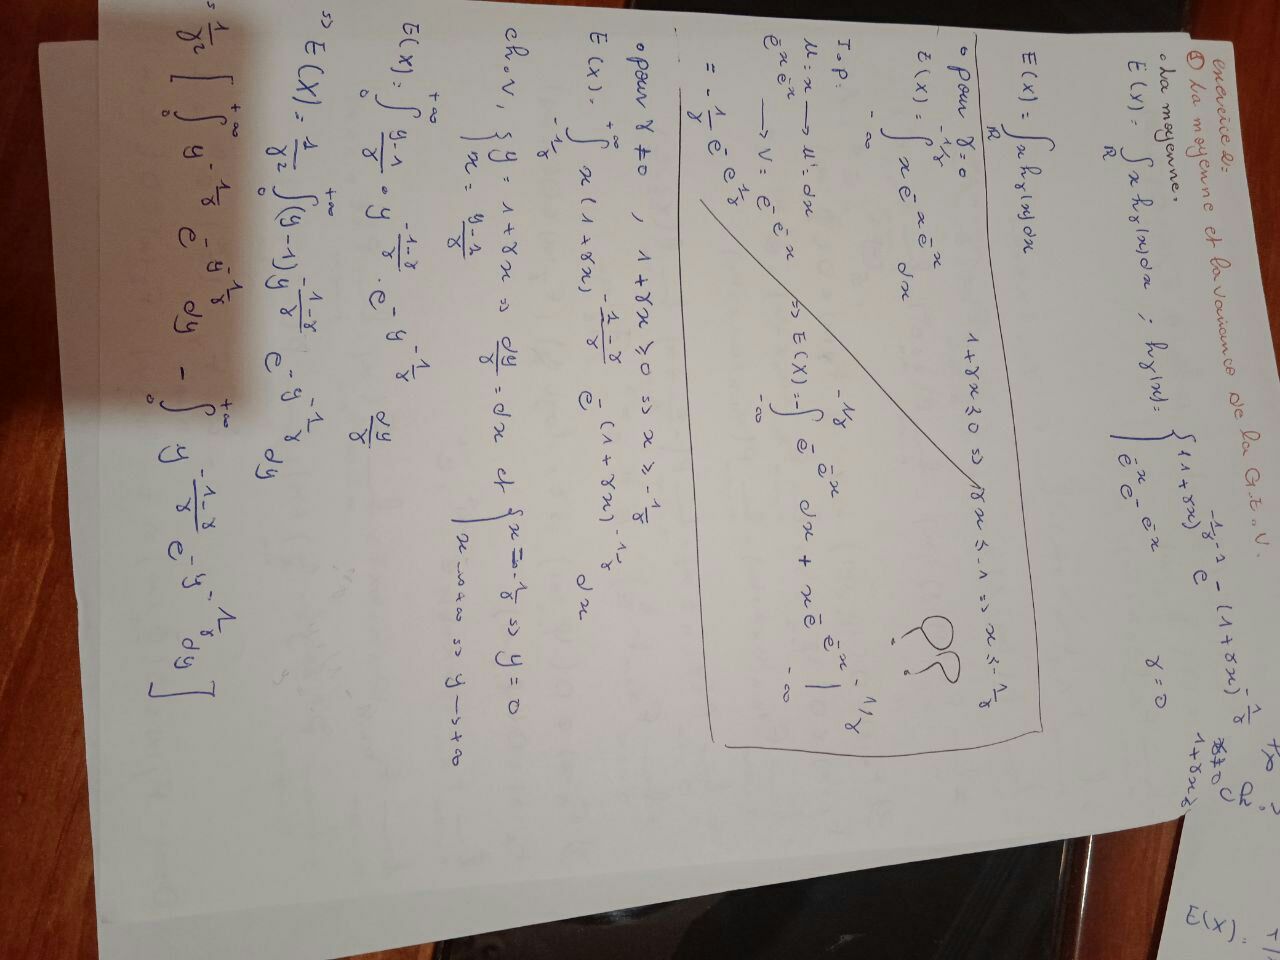 exercice 2:
① La moyenne et la variance de la G.E.V.
• La moyenne.
E(X) = ∫_ℝ x hγ(x) dx ; hγ(x) = { (1+γx)^{-1/γ-1} e^{-(1+γx)^{-1/γ}} γ≠0, 1+γx≥
e^{-x} e^{-e^{-x}} γ=0
E(X) = ∫_ℝ x hγ(x) dx
• pour γ=0 1+γx≤0 => γx≤-1 => x≤-1/γ
E(X) = ∫_{-∞}^{-1/γ} x e^{-x} e^{-x} dx ??
I.P:
u = x → u' = dx
e^{-x} e^{-x} → V = e^{-e^{-x}} => E(X) = -∫_{-∞}^{-1/γ} e^{-e^{-x}} dx + x e^{-e^{-x}} |_{-∞}^{-1/γ}
= -1/γ e^{-e^{1/γ}}
• pour γ≠0, 1+γx≥0 => x≥-1/γ
E(X) = ∫_{-1/γ}^{+∞} x (1+γx)^{(-1-γ)/γ} e^{-(1+γx)^{-1/γ}} dx
ch.v, { y = 1+γx => dy/γ = dx et { x = -1/γ => y = 0
x = (y-1)/γ x → +∞ => y → +∞
E(X) = ∫_0^{+∞} (y-1)/γ · y^{(-1-γ)/γ} · e^{-y^{-1/γ}} dy/γ
=> E(X) = 1/γ² ∫_0^{+∞} (y-1) y^{(-1-γ)/γ} e^{-y^{-1/γ}} dy
= 1/γ² [ ∫_0^{+∞} y^{-1/γ} e^{-y^{-1/γ}} dy - ∫_0^{+∞} y^{(-1-γ)/γ} e^{-y^{-1/γ}} dy ]
E(X) =